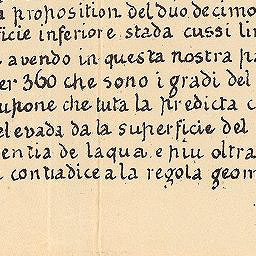 a proposition del duo decimo
ficie inferiore stada cussi lin
avendo in questa nostra pa
er 360 che sono i gradi del
upone che tuta la predicta c
elevada da la superficie del
entia de laqua e piu oltra
contradice a la regola geom